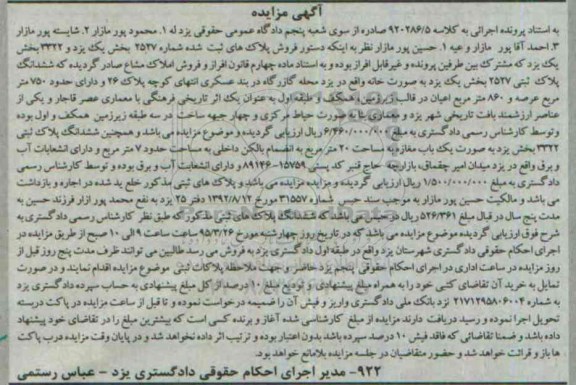 آگهی مزایده
به استناد پرونده اجرائی به کلاسه ۹۲۰۲۸۶/۵ صادره از سوی شعبه پنجم دادگاه عمومی حقوقی یزد له ۱. محمود پور مازار ۲. شایسته پور مازار
۳. احمد آقا پور مازار و عیه ۱. حسین پور مازار نظر به اینکه دستور فروش پلاک های ثبت شده شماره ۲۵۲۷ بخش یک یزد و ۳۳۲۲ بخش
یک یزد که مشترک بین طرفین پرونده و غیرقابل افراز بوده و به استناد ماده چهارم قانون افراز و فروش املاک مشاع صادر گردیده که ششدانگ
پلاک ثبتی ۲۵۲۷ بخش یک یزد به صورت خانه واقع در یزد محله گازرگاه در بند عسکری انتهای کوچه پلاک ۲۶ و دارای حدود ۷۵۰ متر
مربع عرصه و ۸۶۰ متر مربع اعیان در قالب زیرزمین و همکف و طبقه اول به عنوان یک اثر تاریخی فرهنگی با معماری عصر قاجار و یکی از
عناصر ارزشمند بافت تاریخی شهر یزد و معماری بنا به صورت حیاط مرکزی و چهار جبهه ساخت در سه طبقه زیرزمین همکف و اول بوده
و توسط کارشناس رسمی دادگستری به مبلغ ۶/۴۶۰/۰۰۰/۰۰۰ ریال ارزیابی گردیده و موضوع مزایده می باشد و همچنین ششدانگ پلاک ثبتی
۳۳۲۲ بخش یزد به صورت یک باب مغازه به مساحت ۲۰ متر مربع به انضمام بالکن داخلی به مساحت حدود ۷ متر مربع و دارای انشعابات آب
و برق واقع در یزد میدان امیر چقماق، بازارچه حاج قنبر کد پستی ۱۵۷۵۹-۸۹۱۴۶ و دارای انشعاب آب و برق بوده و توسط کارشناس رسمی
دادگستری به مبلغ ۱/۵۰۰/۰۰۰/۰۰۰ ریال ارزیابی گردیده و مزایده مزایده می باشد و پلاک های ثبتی مذکور خلع ید شده در اجاره و بازداشت
می باشد و مالکیت حسین پور مازار به موجب سند حبس شماره ۳۱۵۵۷ مورخ ۱۳۹۲/۸/۱۲ دفتر ۲۵ یزد به نفع محمد پور ازار فرزند حسین به
مدت پنج سال در قبال مبلغ ۵۲۶/۳۶۱ ریال در حبس می باشد که ششدانگ پلاک های ثبتی مذکور که طبق نظر کارشناس رسمی دادگستری به
شرح فوق ارزیابی گردیده موضوع مزایده می باشد که در تاریخ روز چهارشنبه مورخ ۹۵/۳/۲۶ ساعت ۹ الی ۱۰ صبح از طریق مزایده در
اجرای احکام حقوقی دادگستری شهرستان یزد واقع در طبقه اول دادگستری یزد به فروش می رسد طالبین می توانند ظرف مدت پنج روز قبل از
روز مزایده در ساعت اداری در اجرای احکام حقوقی پنجم یزد حاضر و جهت ملاحظه پلاکات ثبتی موضوع مزایده اقدام نمایند و در صورت
تمایل به خرید آن تقاضای کتبی خود را به همراه مبلغ پیشنهادی و تودیع مبلغ ۱۰ درصد از کل مبلغ پیشنهادی به حساب سپرده دادگستری یزد
به شماره ۲۱۷۱۲۹۵۸۰۶۰۰۴ نزد بانک ملی دادگستری واریز و فیش آن را ضمیمه درخواست نموده و تا قبل از ساعت مزایده در پاکت دربسته
تحویل اجرا نموده و رسید دریافت دارند مزایده از مبلغ کارشناسی شده آغاز و برنده کسی است که بیشترین مبلغ را در تقاضای خود پیشنهاد
داده باشد و ضمنا تقاضائی که فاقد فیش ۱۰ درصد سپرده باشد بدون اعتبار بوده و ترتیب اثر داده نخواهد شد و در پایان وقت مزایده درب پاکت
ها باز و قرائت خواهد شد و حضور متقاضیان در جلسه مزایده بلامانع خواهد بود.
۹۲۲- مدیر اجرای احکام حقوقی دادگستری یزد - عباس رستمی